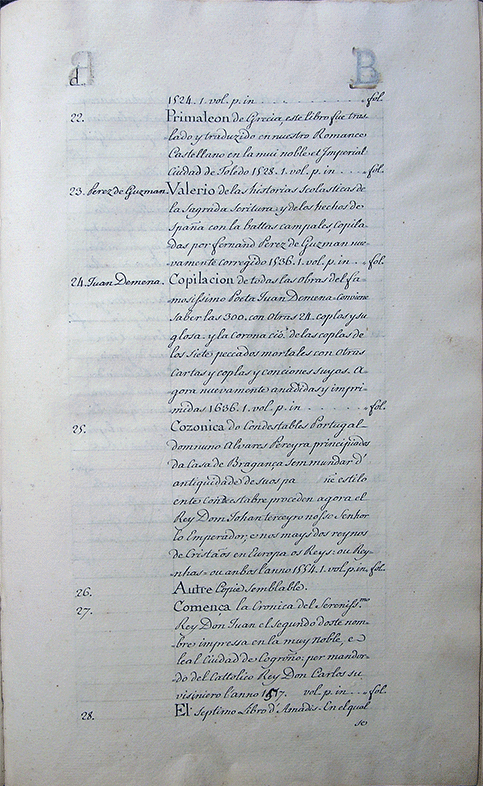 B
1524. 1. vol. p. in . . . . . . . . fol.
22. Primaleon de Grecia, este libro fue tras
lado y traduzido en nuestro Romance
Castellano en la mui noble et Imperial
Ciudad de Toledo 1528. 1. vol. p. in . . fol.
23. Perez de Guzman. Valerio de las historias Scolasticas de
la Sagrada Scritura y de los hechos de
Spaña con la battas campales, Copila-
das por fernand Perez de Guzman nue-
vamente corregido 1536. 1. vol. p. in . . fol.
24. Juan Demena. Copilacion de todas las Obras del fa-
mosissimo Poeta Juan Demena Conviene
Saber las 300. con Otras 24. coplos y su
glosa, y la Coronació. de las coplas de
los Siete peccados mortales con Otras
Cartas y coplas y conciones suyas. A-
gora nuevamente anadidas y impri-
midas 1636. 1. vol. p. in . . . . . . fol.
25. Cozonica do Condestables Portugal-
dom nuno Alvares Pereyra principiados
da Casa de Bragança sem mundar d'
antiquidade de suos pa nie estilo
ente Condestabre proceden agora el
Rey Dom Johan terceyro nosso Senhor
lo Emperador, e nos mays dos reynos
de Cristaos en Europa os Reys ou Rey-
nhas ou anbos l'anno 1554. 1. vol. p. in. fol.
26. Autre Copie semblable.
27. Comença la Cronica del Sereniss.mo
Rey Don Juan el Segundo doste nom-
bre impressa en la muy noble, e
leal Ciudad de Logroño: por manda-
do del Cattolico Rey Don Carlos su
visiniero l'anno 1517. vol. p. in . . fol.
28. El Septimo Libro d'Amadis. En el qual
se